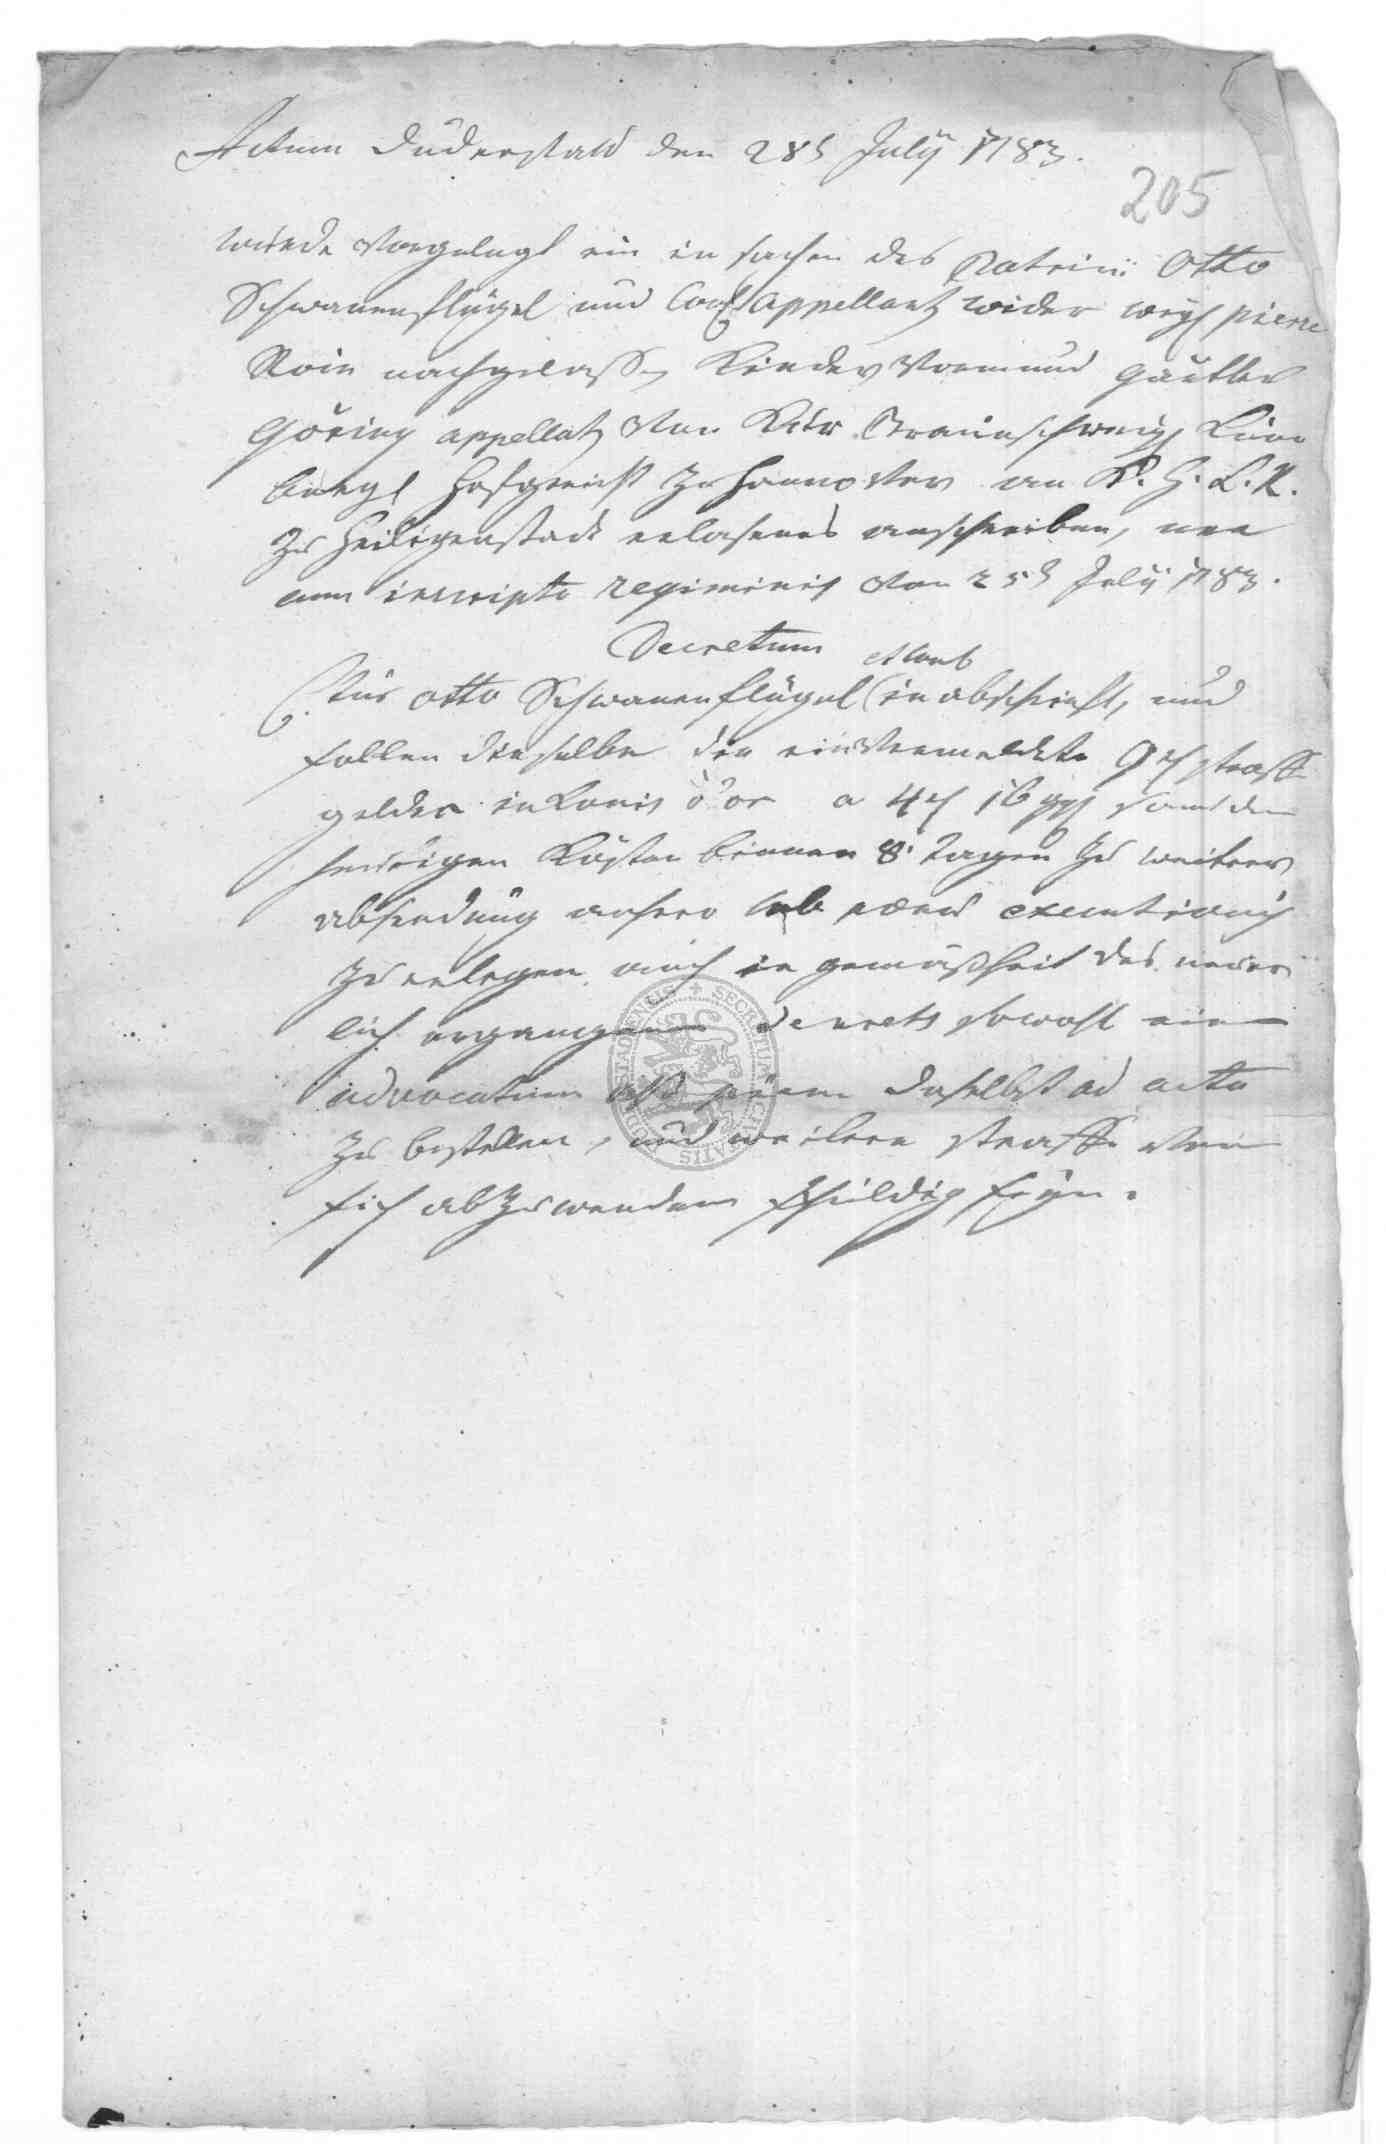 Actum Duderstadt den 28t July 1783.
205
wurde vorgelegt ein in sachen des Patricii Otto
Schwanenflügel und Cons appellant wider weyl pierre
Roin nachgelass Kinder Vormund
Göring appellat von Braunschweig Lüne
burgl Hofgericht zu Hannover an K. H. L. R.
zu Heiligenstadt erlasenes anschreiben, una
cum inscripto regiminis von 25t July 1783.
Decretum
et Cons
Otto Schwanenflügel in abschrift, und
sollen dieselbe die straff
gelder in Louis d'or a 4 16 samt den
hiesigen Kösten binnen 8 tagen zu weiterer
absendung anhero sub poena executionis
zu erlegen auch in gemäßheit des neuer
lich ergangenen decrets sowohl einen
advocatum als daselbst ad acta
zu bestellen, und weitere straffe von
sich abzuwenden schuldig seyn.
SECRETUM CIVITATIS DUDERSTADENSIS